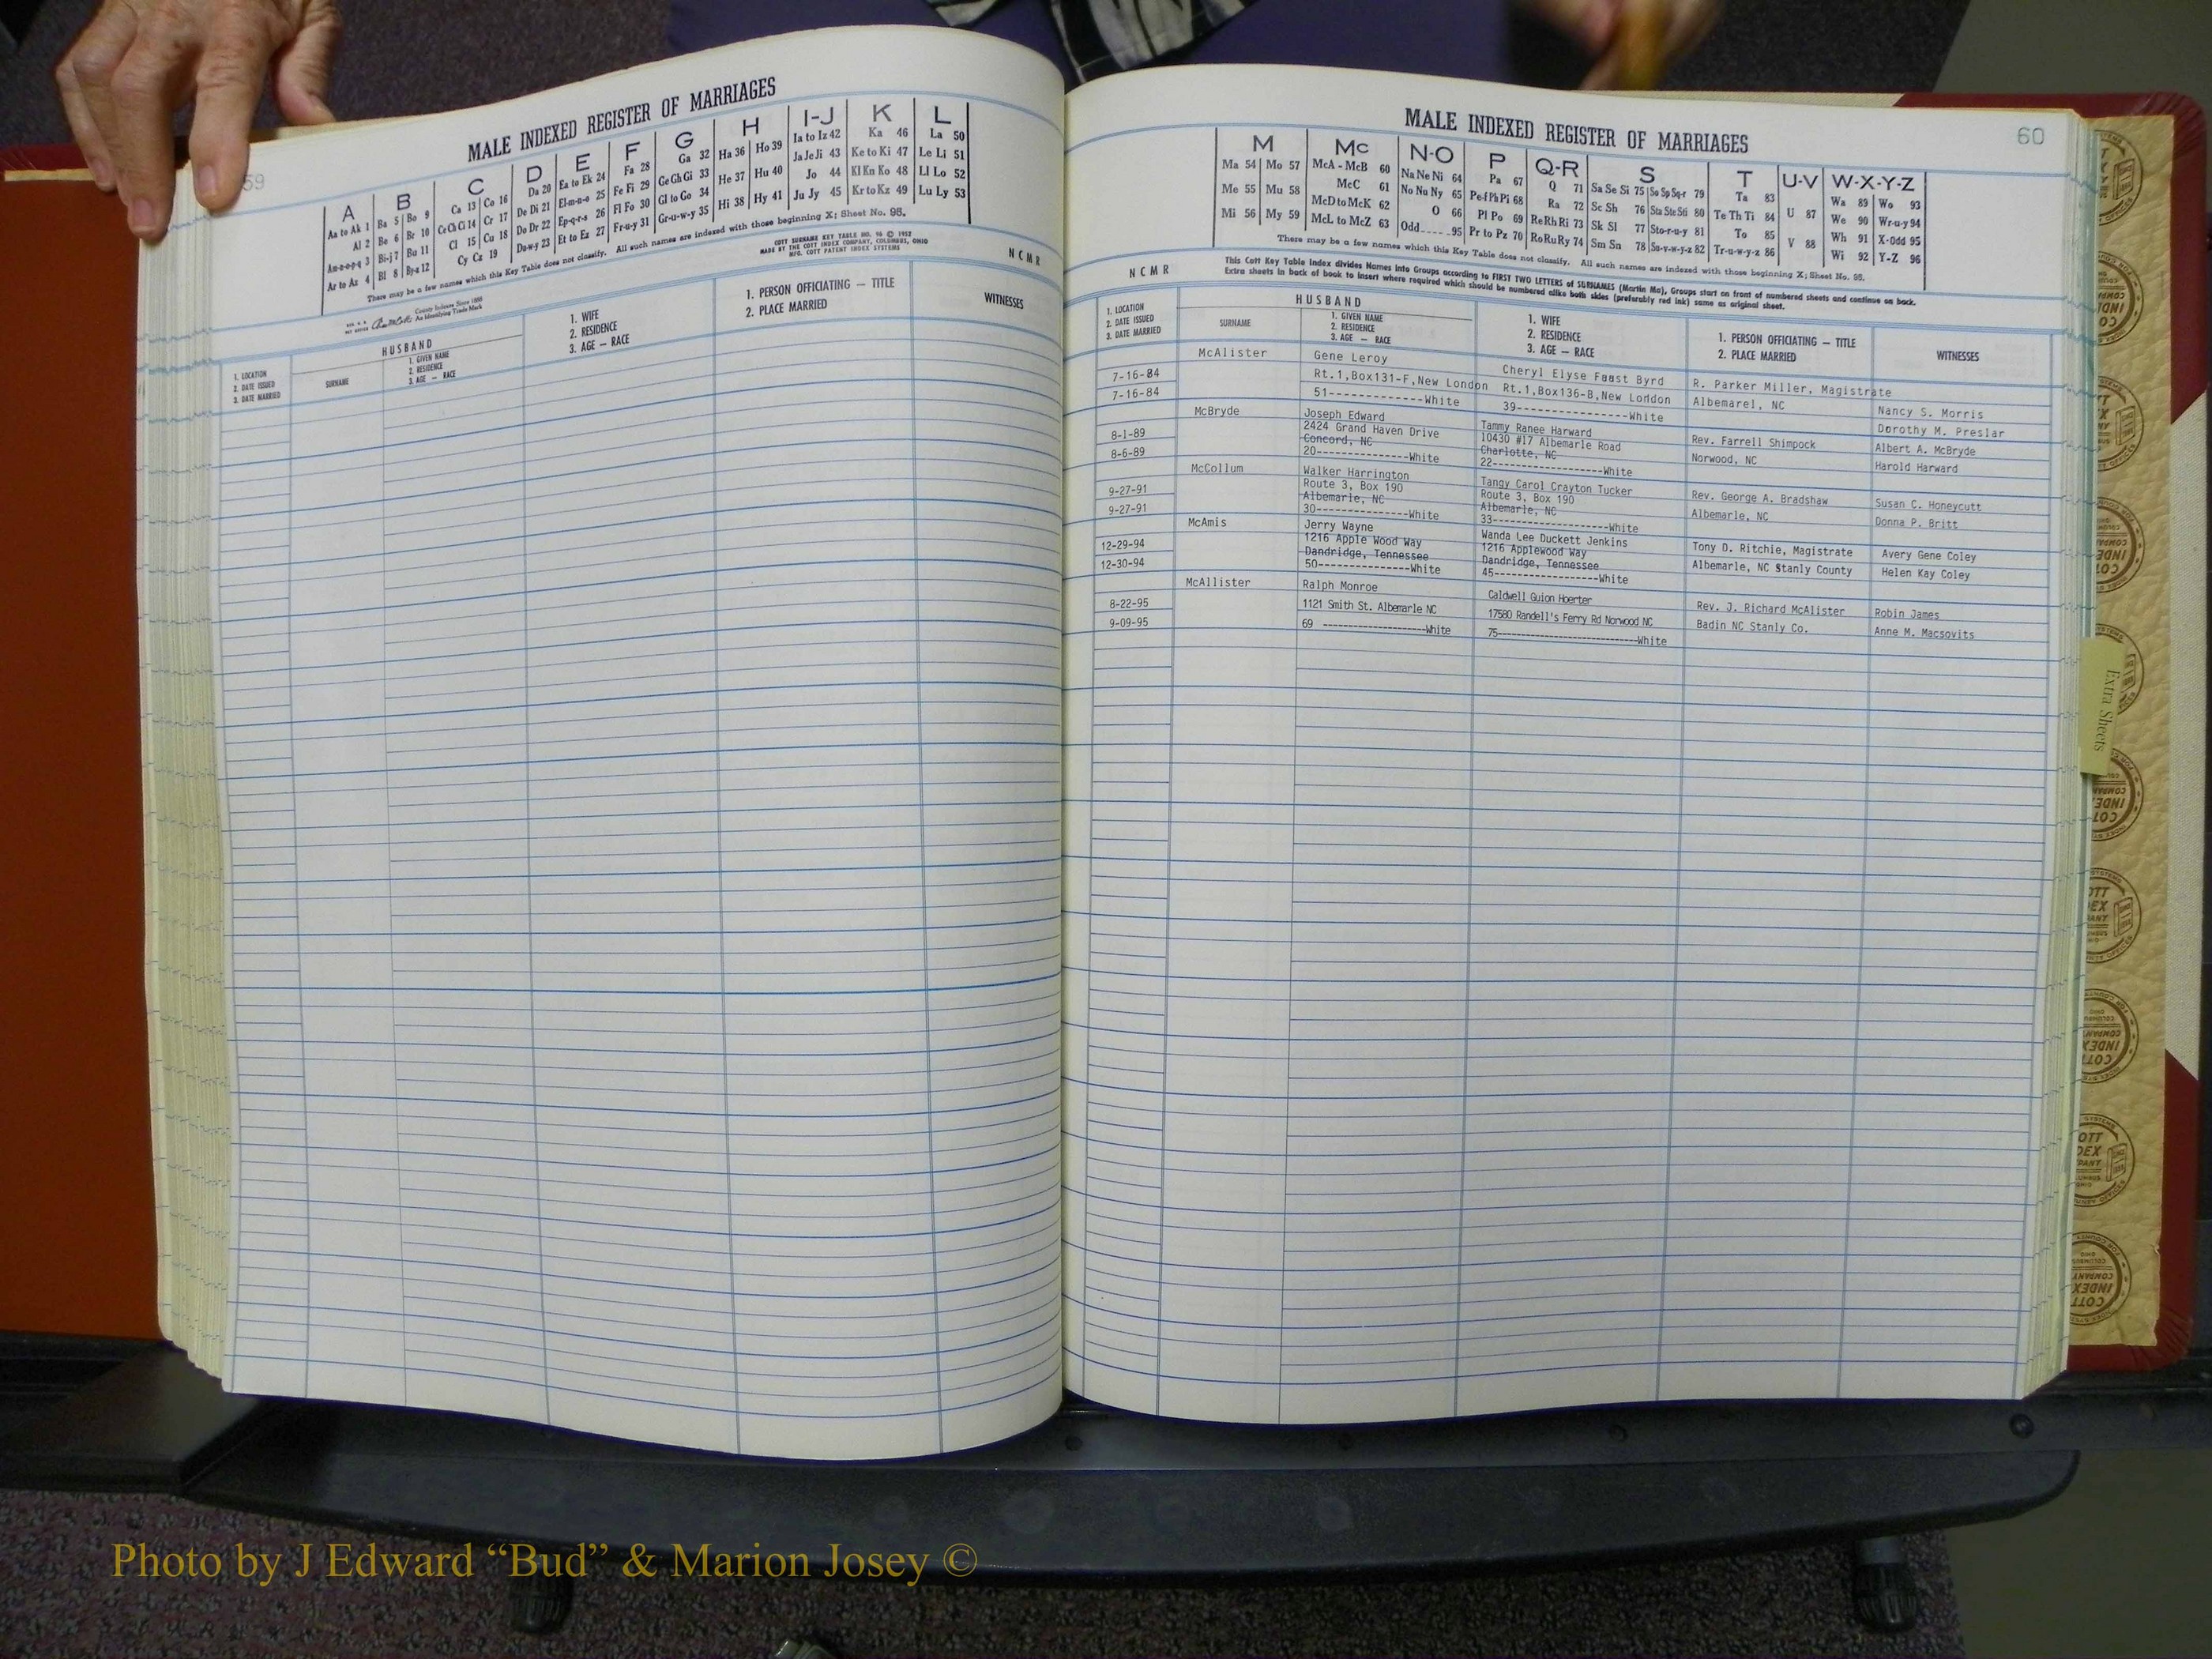 59
MALE INDEXED REGISTER OF MARRIAGES
A B C D E F G H I-J K L
Aa to Ak 1 Ba 5 Bo 9 Ca 13 Co 16 Da 20 Ea to Ek 24 Fa 28 Ga 32 Ha 36 Ho 39 Ia to Iz 42 Ka 46 La 50
Al 2 Be 6 Br 10 Ce Ch Ci 14 Cr 17 De Di 21 El-m-n-o 25 Fe Fi 29 Ge Gh Gi 33 He 37 Hu 40 Ja Je Ji 43 Ke to Ki 47 Le Li 51
Am-n-o-p-q 3 Bi-j 7 Bu 11 Cl 15 Cu 18 Do Dr 22 Ep-q-r-s 26 Fl Fo 30 Gl to Go 34 Hi 38 Hy 41 Jo 44 Kl Kn Ko 48 Ll Lo 52
Ar to Az 4 Bl 8 By-z 12 Cy Cz 19 Du-w-y 23 Et to Ez 27 Fr-u-y 31 Gr-u-w-y 35 Ju Jy 45 Kr to Kz 49 Lu Ly 53
There may be a few names which this Key Table does not classify. All such names are indexed with those beginning X; Sheet No. 95.
County Indexes Since 1888
An Identifying Trade Mark
COTT SURNAME KEY TABLE NO. 96 © 1952
MADE BY THE COTT INDEX COMPANY, COLUMBUS, OHIO
MFG. COTT PATENT INDEX SYSTEMS
N C M R
1. LOCATION
2. DATE ISSUED
3. DATE MARRIED
HUSBAND
SURNAME
1. GIVEN NAME
2. RESIDENCE
3. AGE — RACE
1. WIFE
2. RESIDENCE
3. AGE — RACE
1. PERSON OFFICIATING — TITLE
2. PLACE MARRIED
WITNESSES
60
MALE INDEXED REGISTER OF MARRIAGES
M Mc N-O P Q-R S T U-V W-X-Y-Z
Ma 54 Mo 57 McA - McB 60 Na Ne Ni 64 Pa 67 Q 71 Sa Se Si 75 So Sp Sq-r 79 Ta 83 U 87 Wa 89 Wo 93
Me 55 Mu 58 McC 61 No Nu Ny 65 Pe-f Ph Pi 68 Ra 72 Sc Sh 76 Sta Ste Sti 80 Te Th Ti 84 V 88 We 90 Wr-u-y 94
Mi 56 My 59 McD to McK 62 O 66 Pl Po 69 Re Rh Ri 73 Sk Sl 77 Sto-r-u-y 81 To 85 Wh 91 X-Odd 95
McL to McZ 63 Odd 95 Pr to Pz 70 Ro Ru Ry 74 Sm Sn 78 Su-v-w-y-z 82 Tr-u-w-y-z 86 Wi 92 Y-Z 96
There may be a few names which this Key Table does not classify. All such names are indexed with those beginning X; Sheet No. 95.
This Cott Key Table Index divides Names into Groups according to FIRST TWO LETTERS of SURNAMES (Martin Ma), Groups start on front of numbered sheets and continue on back.
Extra sheets in back of book to insert where required which should be numbered alike both sides (preferably red ink) same as original sheet.
N C M R
1. LOCATION
2. DATE ISSUED
3. DATE MARRIED
HUSBAND
SURNAME
1. GIVEN NAME
2. RESIDENCE
3. AGE — RACE
1. WIFE
2. RESIDENCE
3. AGE — RACE
1. PERSON OFFICIATING — TITLE
2. PLACE MARRIED
WITNESSES
McAlister Gene Leroy Cheryl Elyse Faust Byrd
7-16-84 Rt.1,Box131-F,New London Rt.1,Box136-B,New London R. Parker Miller, Magistrate Nancy S. Morris
7-16-84 51---------------White 39-----------------White Albemarel, NC Dorothy M. Preslar
McBryde Joseph Edward Tammy Ranee Harward
8-1-89 2424 Grand Haven Drive 10430 #17 Albemarle Road Rev. Farrell Shimpock Albert A. McBryde
Concord, NC Charlotte, NC
8-6-89 20---------------White 22------------------White Norwood, NC Harold Harward
McCollum Walker Harrington Tangy Carol Crayton Tucker
9-27-91 Route 3, Box 190 Route 3, Box 190 Rev. George A. Bradshaw Susan C. Honeycutt
Albemarle, NC Albemarle, NC
9-27-91 30---------------White 33------------------White Albemarle, NC Donna P. Britt
McAmis Jerry Wayne Wanda Lee Duckett Jenkins
12-29-94 1216 Apple Wood Way 1216 Applewood Way Tony D. Ritchie, Magistrate Avery Gene Coley
Dandridge, Tennessee Dandridge, Tennessee
12-30-94 50---------------White 45-----------------White Albemarle, NC Stanly County Helen Kay Coley
McAllister Ralph Monroe Caldwell Guion Hoerter
8-22-95 1121 Smith St. Albemarle NC 17580 Randell's Ferry Rd Norwood NC Rev. J. Richard McAlister Robin James
9-09-95 69 --------------------White 75--------------------------White Badin NC Stanly Co. Anne M. Macsovits
Extra Sheets
Photo by J Edward “Bud” & Marion Josey ©